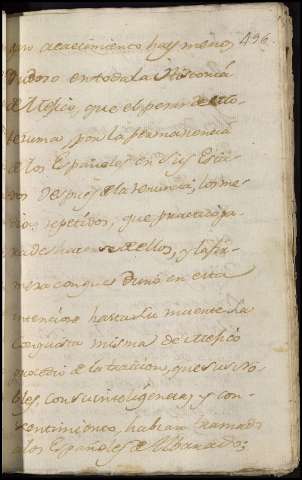 acaecimiento hay menos 496
dudoso en toda la Historia
de Mexico, que el pesar de Mo-
tezuma por la permanencia
de los Españoles en sus Esta-
dos despues de la renuncia; los me-
dios repetidos, que practicó pa-
ra deshacerse de ellos, y la fir-
meza con que duró en esta
intencion hasta su muerte. La
conquista misma de Mexico
procedió de la traicion, que sus No-
bles, con su inteligencia, y con-
sentimiento, habian tramado
a los Españoles de Albarado;